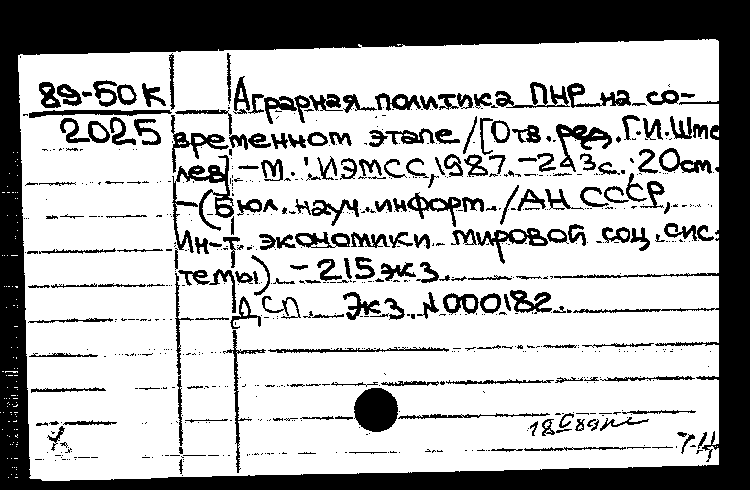 89-50К
2025
Аграрная политика ПНР на со-
временном этапе /[Отв. ред. Г.И.Шме
лев] - М. : ИЭМСС, 1987. - 243с.; 20см.
- (Бюл. науч. информ. / АН СССР,
Ин-т экономики мировой соц. сис-
темы). - 215экз.
ДСП. Экз. №000182.
7-4